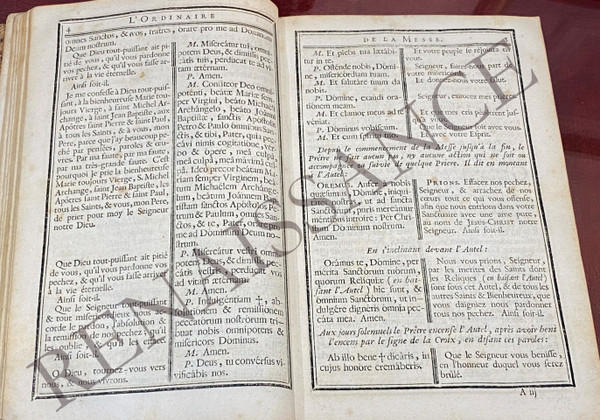 4
L'ORDINAIRE
omnes Sanctos, & vos, fratres, orare pro me ad Dominum
Deum nostrum.
Que Dieu tout-puissant ait pi-
tié de vous, qu'il vous pardonne
vos pechez, & qu'il vous fasse ar-
river à la vie éternelle.
Ainsi soit-il.
Je me confesse à Dieu tout-puis-
sant, à la bienheureuse Marie tou-
jours Vierge, à saint Michel Ar-
change, à saint Jean Baptiste, aux
Apôtres saint Pierre & saint Paul,
à tous les Saints, & à vous, mon
Pere, que j'ay beaucoup pe-
ché par pensées, paroles & œu-
vres. Par ma faute, par ma faute,
par ma tres-grande faute. C'est
pourquoi je prie la bienheureuse
Marie toujours Vierge, S. Michel
Archange, saint Jean Baptiste, les
Apôtres saint Pierre & saint Paul,
tous les Saints, & vous, mon Pere,
de prier pour moy le Seigneur
notre Dieu.
Que Dieu tout-puissant ait pitié
de vous, qu'il vous pardonne vos
pechez, & qu'il vous fasse arriver
à la vie éternelle.
Ainsi soit-il.
Que le Seigneur tout-puissant
& tout misericordieux nous
corde le pardon, l'absolution
la remission de nos pechez, qu'il
les oublie
Ainsi soit-il.
O Dieu, tournez-vous vers
nous, & nous vivrons.
M. Misereátur tui, omni-
potens Deus, & dimissis pec-
cátis tuis, perdúcat te ad vi-
tam æternam.
P. Amen.
M. Confiteor Deo omni-
potenti, beátæ Mariæ sem-
per Virgini, beáto Michaëli
Archángelo, beáto Joánni
Baptistæ, sanctis Apóstolis
Petro & Paulo ómnibus San-
ctis, & tibi, Pater, quia pec-
cávi nimis cogitatióne, ver-
bo & ópere, meâ culpâ,
meâ culpâ, meâ máximâ cul-
pâ. Ideo precor beátam Ma-
riam semper Virginem, beá-
tum Michaëlem Archánge-
lum, beátum Joánnem
Baptístam sanctos Apóstolos Pe-
trum & Paulum, omnes San-
ctos, & te, Pater, oráre pro
me ad Dóminum Deum no-
strum.
P. Misereátur vestri omni-
potens Deus, & dimissis pec-
cátis vestris, perdúcat vos
ad vitam ætérnam.
M. Amen.
P. Indulgentiam †, ab-
solutiónem & remissiónem
peccatórum nostrórum tri-
buat nobis omnípotens &
misericors Dóminus.
M. Amen.
P. Deus, tu convérsus vi-
vificábis nos.
DE LA MESSE.
M. Et plebs tua lætábi-
tur in te.
P. Osténde nobis, Domi-
ne, misericórdiam tuam.
M. Et salutáre tuum da
nobis.
P. Domine, exáudi ora-
tiónem meam.
M. Et clamor meus ad te
véniat.
P. Dominus vobiscum.
M. Et cum spíritu tuo.
Et votre peuple se réjouira en
vous.
Seigneur, faites-nous part de
votre misericorde.
Et donnez-nous votre salut.
Seigneur, exaucez mes prieres.
Et que mes cris penetrent jus-
qu'à vous.
Que le Seigneur soit avec vous.
Et avec votre Esprit.
Depuis le commencement de la Messe jusqu'à la fin, le
Prêtre ne fait aucun pas, ny aucune action qui ne soit ou
accompagnée ou suivie de quelque Priere. Il dit en montant
à l'Autel:
OREMUS. Aufer
quæsumus, Dómine, iniqui-
nostras, ut ad sancta
Sanctórum, puris mereámur
méntibus introíre: Per Chri-
stum Dóminum nostrum.
Amen.
PRIONS. Effacez nos pechez,
Seigneur, & arrachez de nos
cœurs tout ce qui vous offense,
afin que nous entrions dans votre
Sanctuaire avec une ame pure,
au nom de JESUS-CHRIST notre
Seigneur. Ainsi soit-il.
En s'inclinant devant l'Autel:
Orámus te, Dómine, per
mérita Sanctórum tuórum,
quorum Reliquiæ (en bai-
sant l'Autel) hic sunt, &
ómnium Sanctórum, ut in-
dulgére dignéris ómnia pec-
cáta mea. Amen.
Nous vous prions, Seigneur,
par les merites des Saints dont
les Reliques (en baisant l'Autel)
sont sous cet Autel, & de tous les
autres Saints & Bienheureux, que
vous daigniez nous pardonner
tous nos pechez. Ainsi soit-il.
Aux jours solemnels le Prêtre encense l'Autel, après avoir beni
l'encens par le signe de la Croix, en disant ces paroles:
Ab illo bene † dicáris, in
cujus honóre cremáberis.
Que le Seigneur vous benisse,
en l'honneur duquel vous serez
brûlé.
A iij
RENAISSANCE